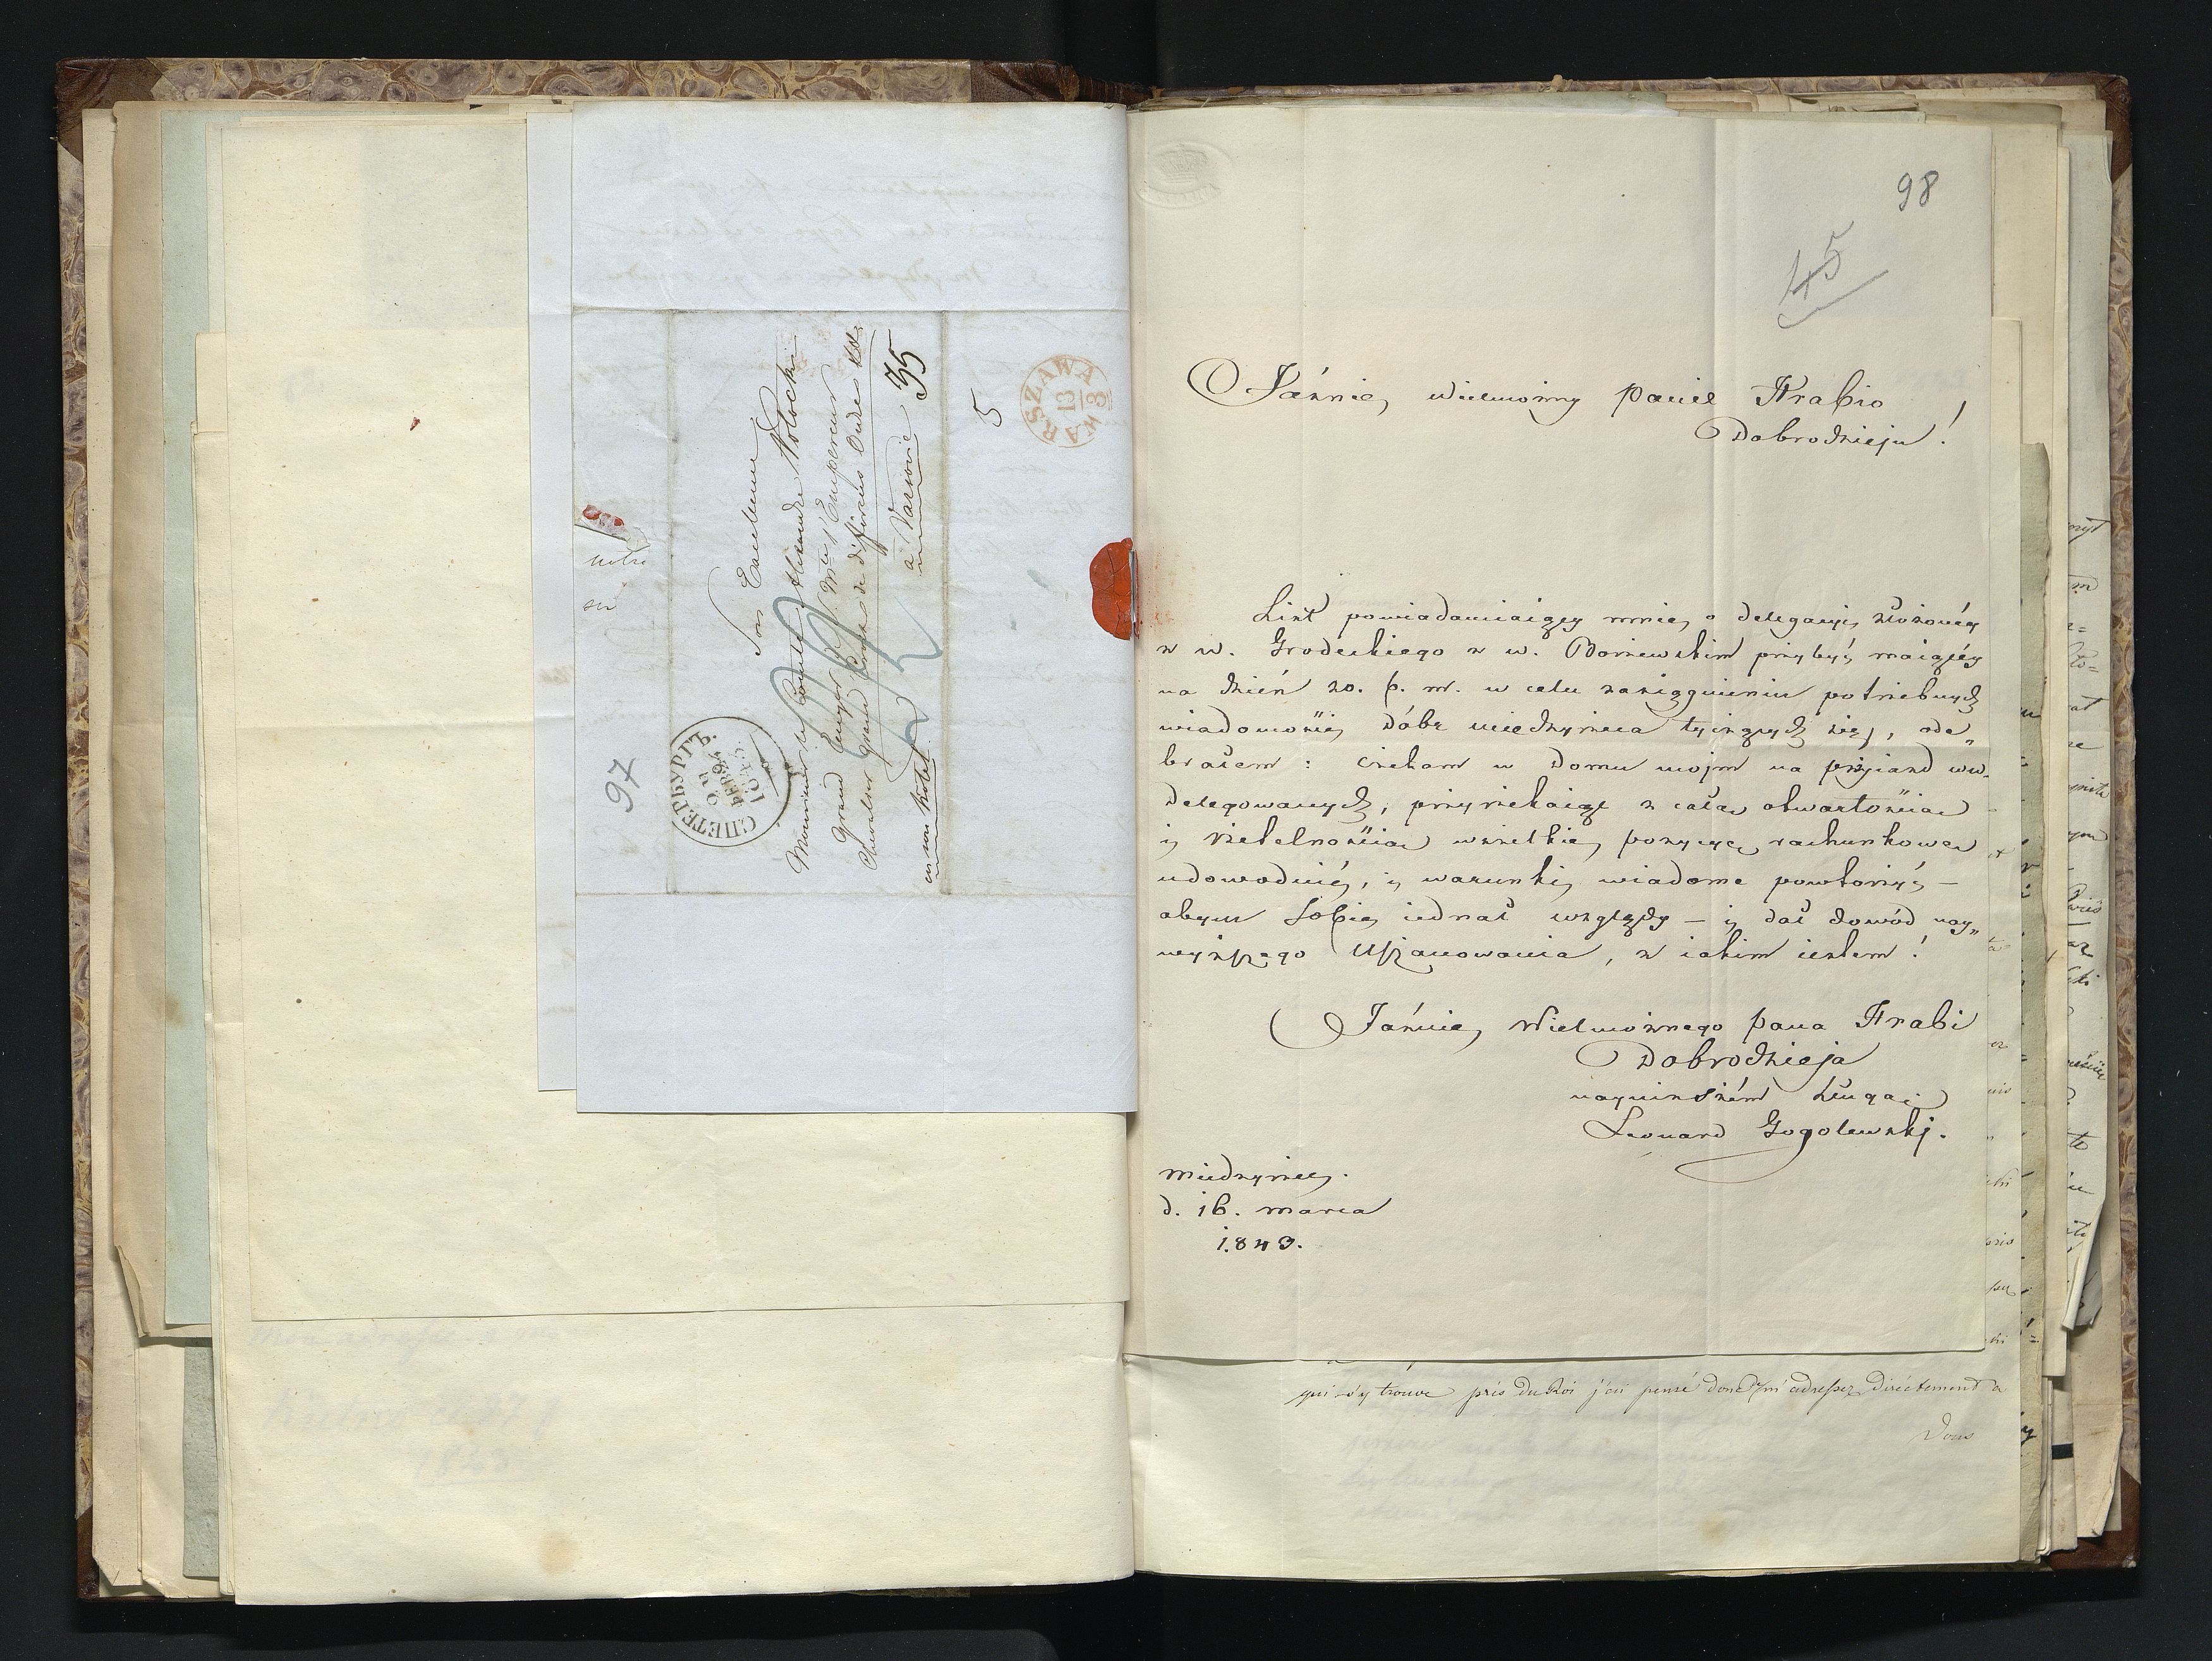 97
С.ПЕТЕРБУРГЪ.
Son Excellence
Monsieur le Comte Alexandre Potocki
Grand Ecuyer de S. Mté l'Empereur
Chevalier Grand Croix de différens Ordres
à Varsovie
en son hotel.
35
5
WARSZAWA
13
3
notre
98
45
Jáśnie wielmożny panie Hrabio
Dobrodzieju!
List powiadamiaiący mnie, o delegacyi złożonéy
z w. Grodeckiego z w. Boniewskim przybyć maiącéy
na dzień 20. b. m. w celu zasiągnienia potrzebnych
wiadomości, dóbr miedzyrzeca tyczących się, ode„
brałem: czekam w domu mojm na przyiazd ww.
delegowanych, przyrzekaiąc z całą otwartością
i rzetelnością wszelkie pozycye rachunkowe
udowodnić, i warunki wiadome powtórzyć —
abym Sobie iednał względy — i dał dowód nay„
wyższego Uszanowania, z iakim iestem!
Jaśnie Wielmożnego pana Hrabi
Dobrodzieja
nayniższém sługą
Leonard Gogolewskj.
miedzyrzec.
d. 16. marca
1.843.
qui s'y trouve près du Roi j'ai pensé donc m'adresser directement a
Vous